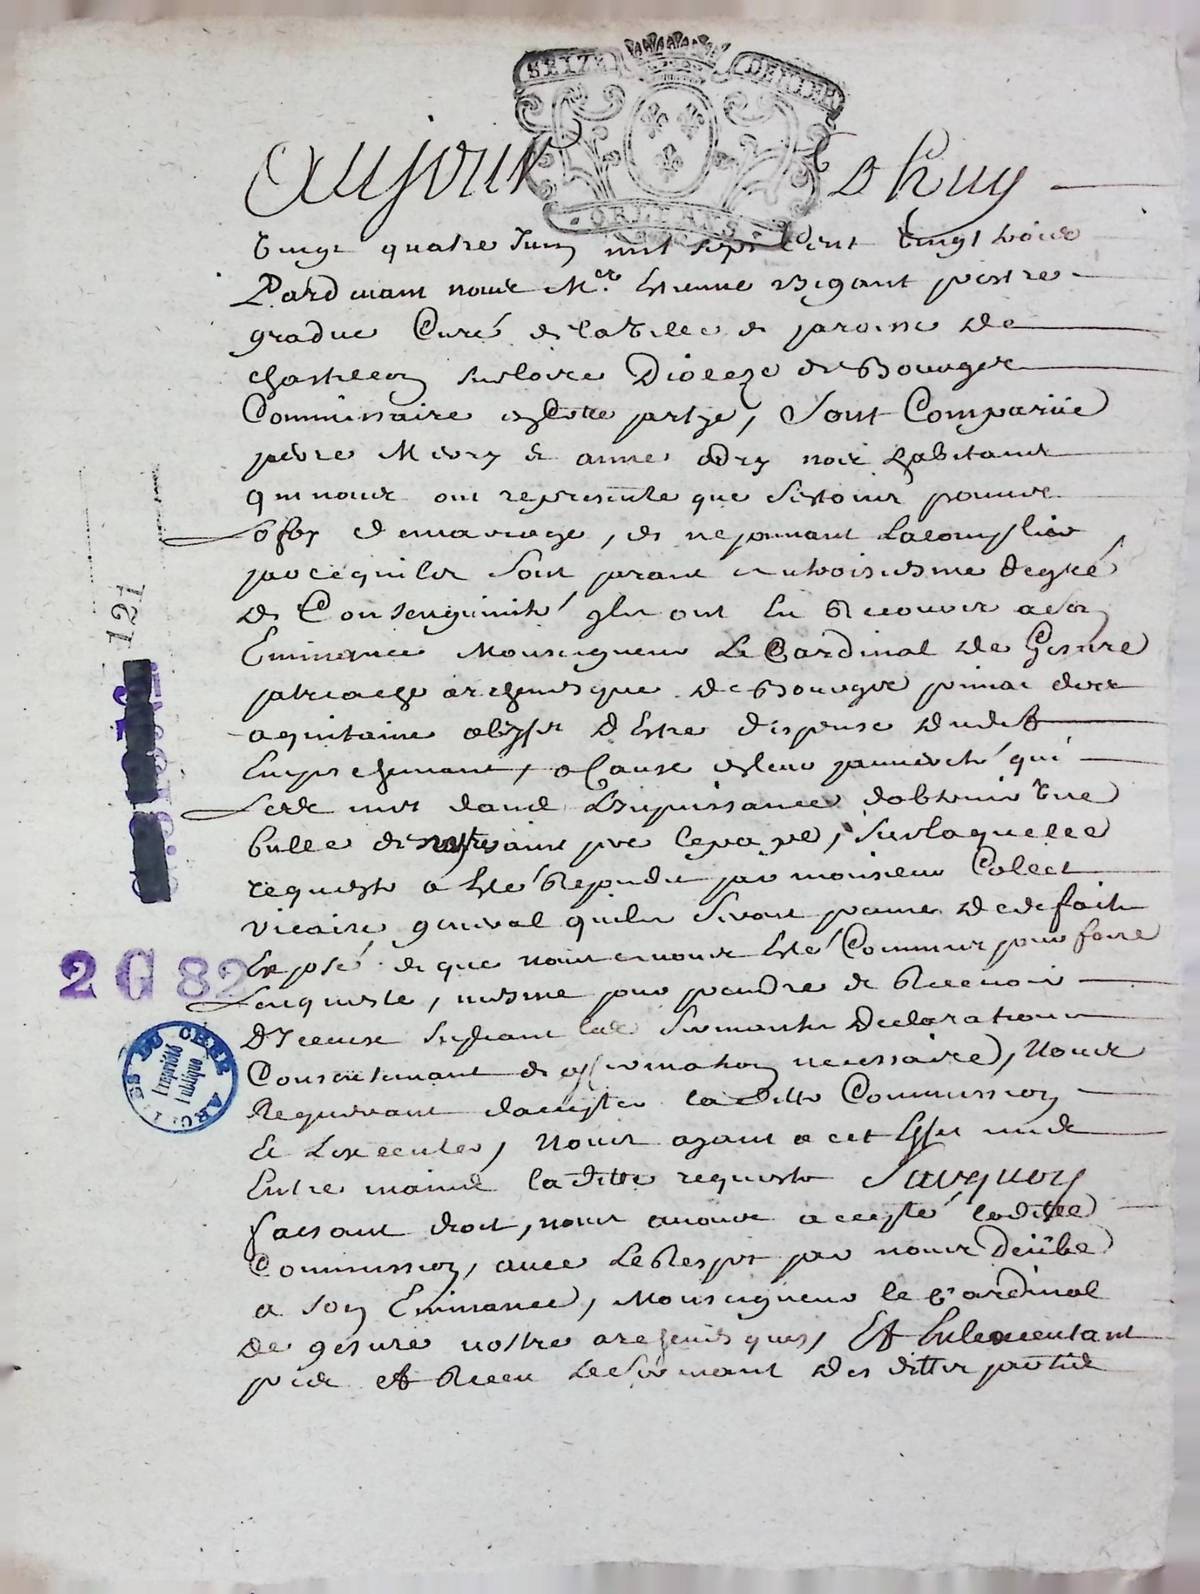 SEIZE DENIER
ORLEANS
Aujourdhuy
vingt quatre Juin mil sept Cent vingt trois
Pardevant nous Me. Estienne Bigant prestre
gradué Curé de la ville et paroisse de
chastillon sur loire Dioceze de Bourges
Commissaire en cette partye, Sont Comparüe
pierre Mery et anne odry nos habitans
qui nous ont representé que S'estoint promis
la foy de mariage, et ne pouvant lacomplir
parcequils sont parant en troisiesme degré
de Consenguinité ils ont Eu Recours a son
Eminance Monseigneur Le Cardinal de Gesvre
patriarche archevesque de Bourges primat des
aquitaine D'Estre dispensé dudit
Empeschemant, a Cause de leur pauvreté qui
les met dans L'impuissance d'obtenir une
bulle de nostre saint pere le pape, Sur laquelle
requeste a Esté Repondu par monsieur Colect
vicaire general quils
Exposé et que nous avons Esté Commis pour faire
Lenqueste, mesme pour prendre et Recevoir
D'Iceux Supliant les Serments Declarations
Consentemant et afirmation necessaire, Nous
Requerant dacepter laditte Commission
Et L'executer, Nous ayant a cet Effet mis
Entre mains laditte requeste Surquoy
faisant droit, nous avons accepté laditte
Commission, avec le Respet par nous Deübe
a Son Eminance, Monseigneur le Cardinal
de gesvre nostre archevesques, Et
pris et Receu le Serment des dittes parties
121
2 G 82
ARCHIVES DU CHER
Propriété
Publique